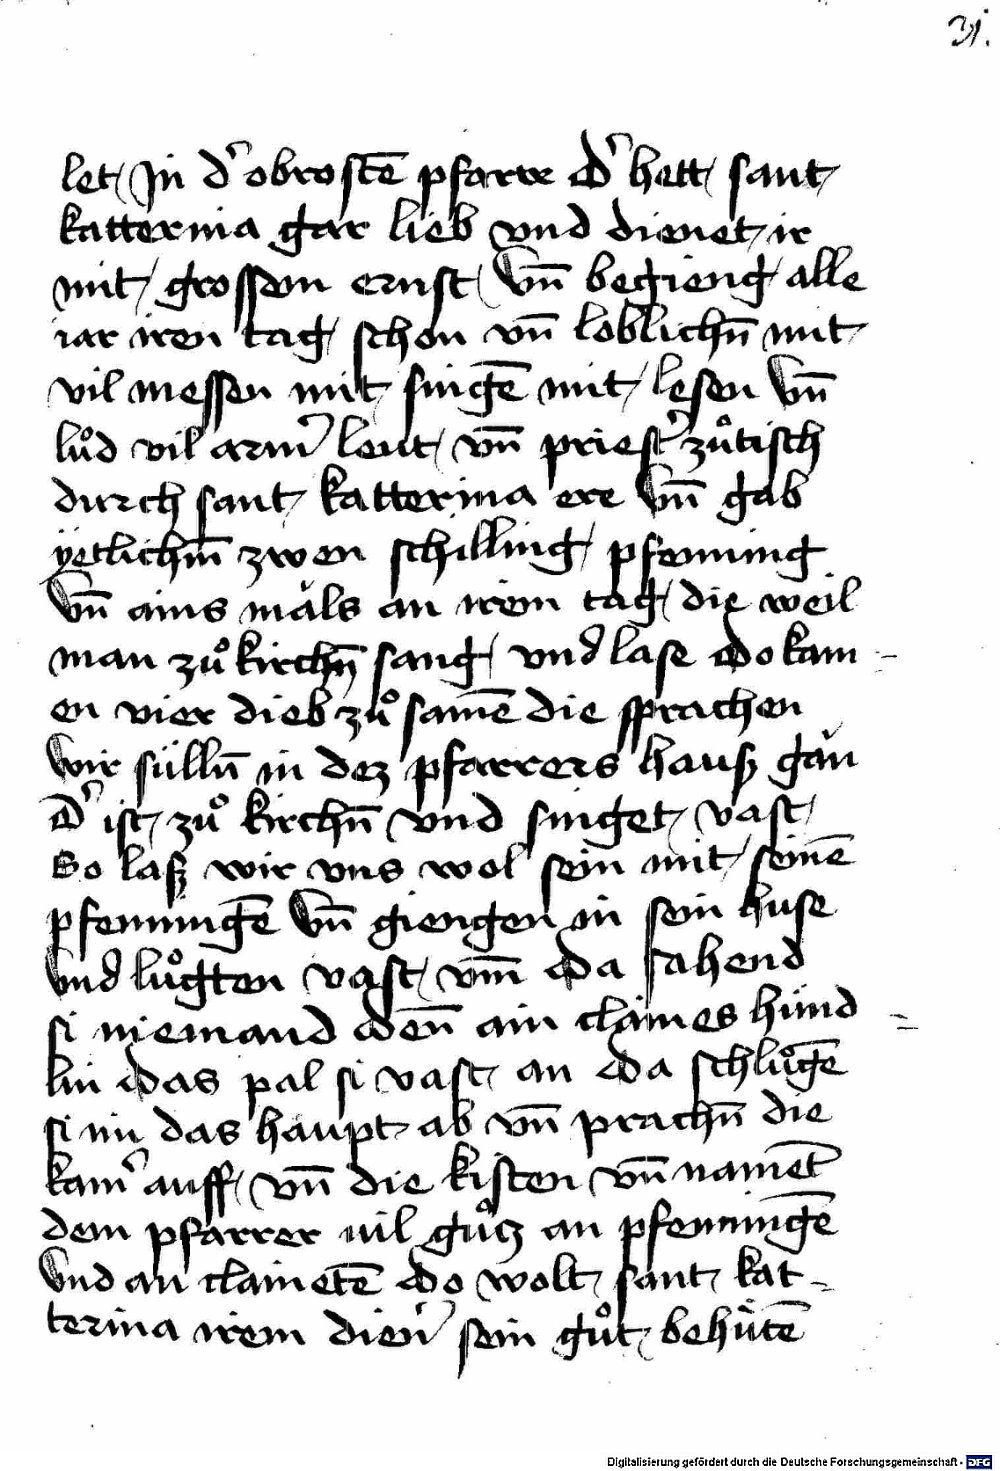 31.
let / In dˀ obrostē pfarre dˀ hett / sant /
katterina gar lieb vnd dienet / ir
mit / grossem ernst / Vn̄ begieng alle
iar iren tag / schon vn̄ loblichn̄ mit /
vil messen mit / singē mit / lesen Vn̄
lůd vil armˀ leut / vn̄ priestˀ zůtisch
durch sant / katterina ere Vn̄ gab
yetlichm̄ zwen schilling / pfenning
Vn̄ ains mǎls an irem tag / die weil
man zů kirchn̄ sang / vnd lase do kam =
en vier dieb zů samē die sprachen
wir süllñ in dez pfarrers hausz gǎn
dˀ ist / zů kirchn̄ vnd singet / vast /
So lasz wir vns wol sein mit / seinē
pfenningē Vn̄ giengen in sein huse
Vnd lůgten vast / vm̄ da sahend
si niemand den̄ ain claines hünd =
lin das pal si vast / an da schlůgē
si im das haupt ab vn̄ prachn̄ die
kamˀ auff / vn̄ die kisten vn̄ namēt
dem pfarrer vil gůtz an pfenningē
Vnd an clainetē do wolt / sant / kat =
terina irem dienˀ sein gůt / behütē
Digitalisierung gefördert durch die Deutsche Forschungsgemeinschaft - DFG